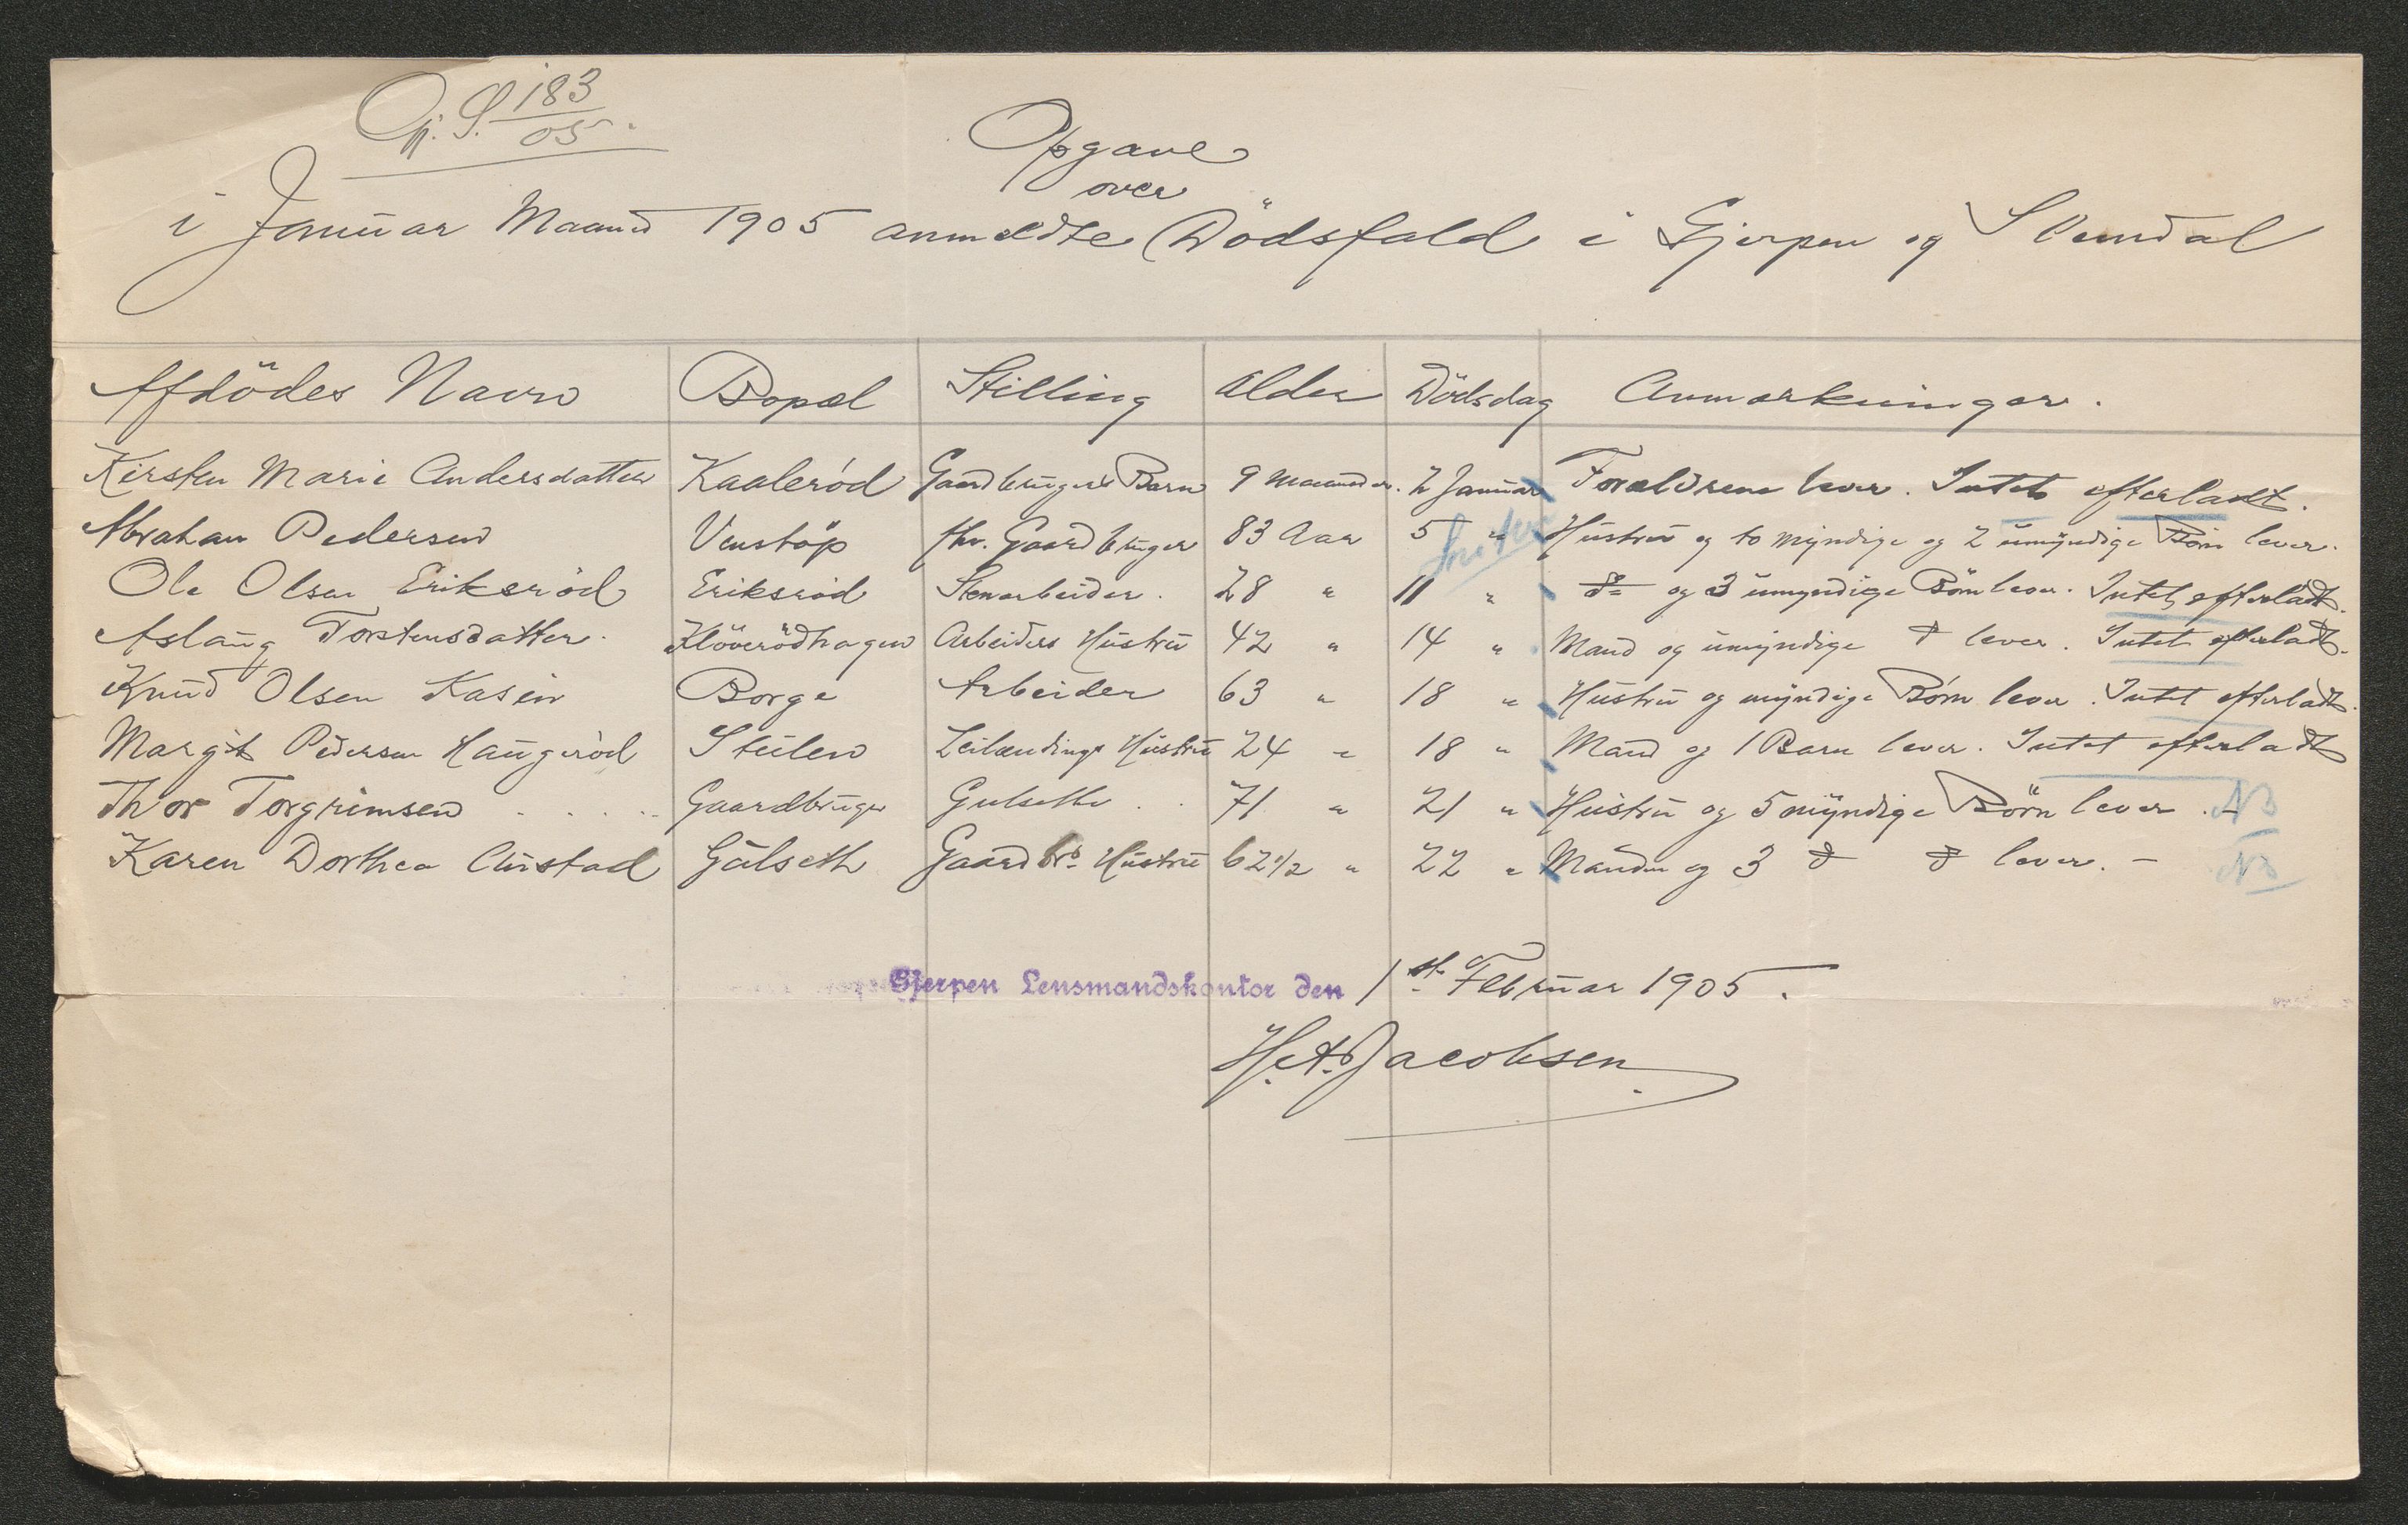 Op. S. 183/05.
Opgave
over
i Januar Maaned 1905 anmeldte Dödsfald i Gjerpen og Slemdal
Afdödes Navn Bopæl Stilling Alder Dödsdag Anmærkninger.
Kirsten Marie Andersdatter Kaaleröd Gaardbrugers Barn 9 Maaneder. 2 Januar Forældrene lever. Intet efterladt.
Abraham Pedersen Venstöp fhv. Gaardbruger 83 Aar 5 " Hustru og to myndige og 2 umyndige Börn lever.
Ole Olsen Eriksröd Eriksröd Stenarbeider. 28 " 11 " do og 3 umyndige Börn lever. Intet efterladt.
Aslaug Torstensdatter. Klöverödhagen Arbeiders Hustru 42 " 14 " Mand og umyndige do lever. Intet efterladt.
Knud Olsen Kasin Borge Arbeider 63 " 18 " Hustru og myndige Börn lever. Intet efterladt.
Margit Pedersen Haugeröd Stulen Leilændings Hustru 24 " 18 " Mand og 1 Barn lever. Intet efterladt
Thor Torgrimsen . . . . . Gaardbruger Gulseth . . 71 " 21 " Hustru og 5 myndige Börn lever. - NB
Karen Dorthea Austad Gulseth Gaardbrs Hustru 62 1/2 " 22 " Manden og 3 do do lever. - NB
Gjerpen Lensmandskontor den 1st Februar 1905.
H. A. Jacobsen